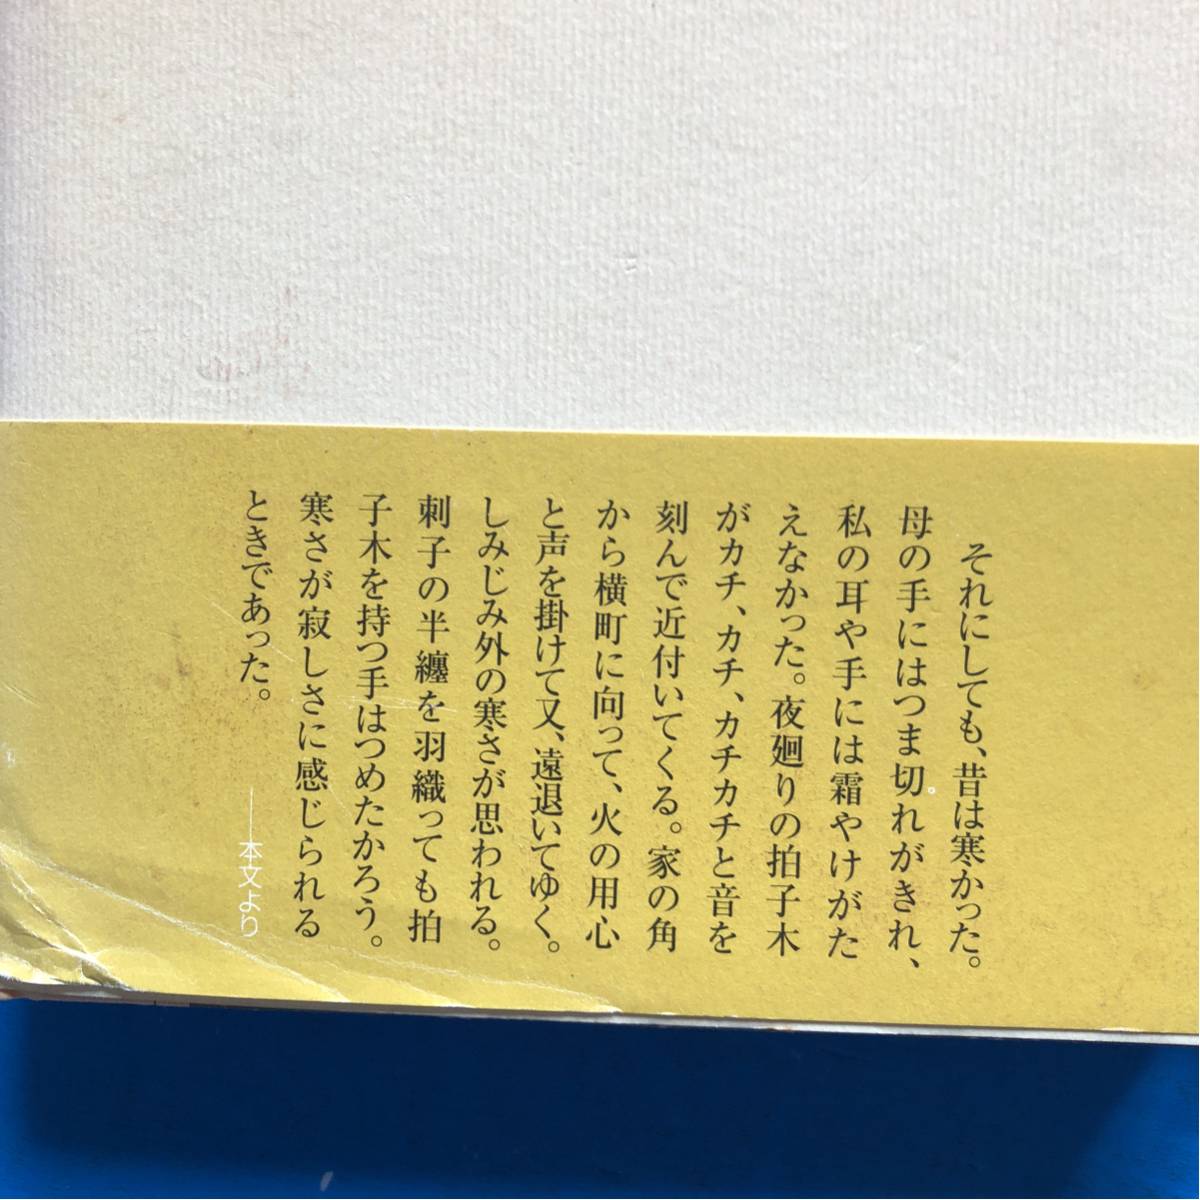 それにしても、昔は寒かった。
母の手にはつま切れがきれ、
私の耳や手には霜やけがた
えなかった。夜廻りの拍子木
がカチ、カチ、カチカチと音を
刻んで近付いてくる。家の角
から横町に向って、火の用心
と声を掛けて又、遠退いてゆく。
しみじみ外の寒さが思われる。
刺子の半纏を羽織っても拍
子木を持つ手はつめたかろう。
寒さが寂しさに感じられる
ときであった。
──本文より